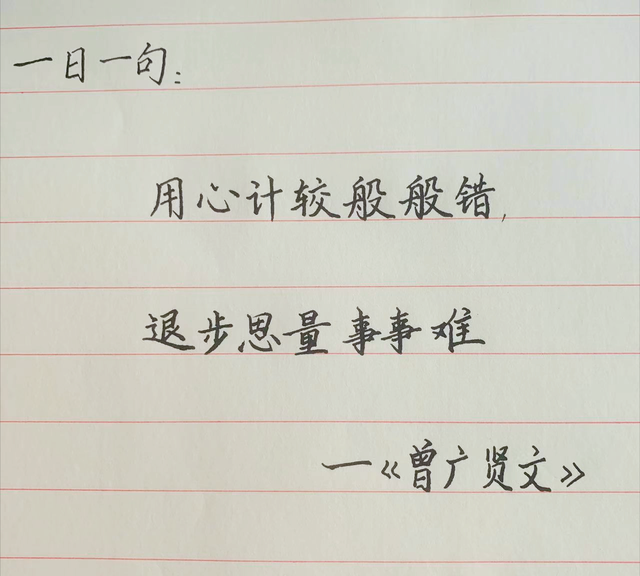 一日一句：
用心计较般般错，
退步思量事事难
—《曾广贤文》